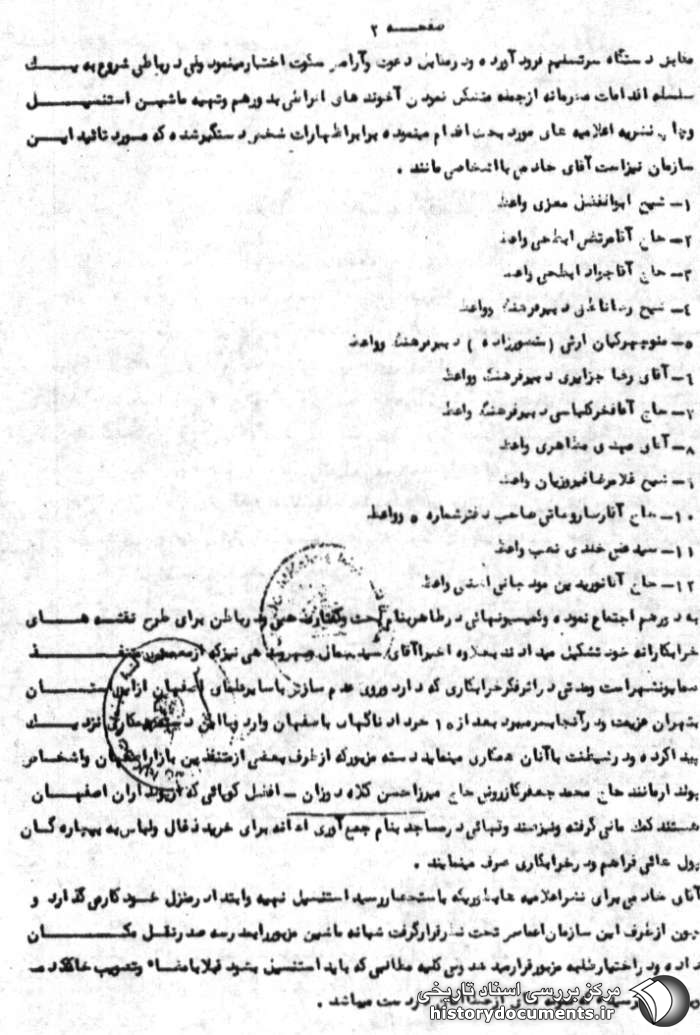 صفحـــه ۲
مقابل دستگاه سرتسلیم فرود آورده ودرمقابل دعوت وآرامش سکوت اختیارمینمود ولی درباطن شروع به یــک
سلسله اقدامات مخرمانه ازجمله متشکل نمودن آخوند های افراطی بدورهم وتهیه ماشین استنسیــل
وچاپ نشریه اعلامیه های مورد بحث اقدام مینموده برابراظهارات شخص دستگیرشده که مــورد تائید ایــن
سازمان نیزاست آقای خادمی بااشخاصی مانند .
۱ــ شیخ ابوالفضل معزی واعظ
۲ــ حاج آقامرتضی ابطحی واعظ
۳ــ حاج آقاجواد ابطحی واعظ
٤ــ شیخ رضا دبیرفرهنگ وواعظ
۵ــ منوچهرکیان ارثی ( منصورزاده ) دبیرفرهنگ وواعظ
٦ــ آقای رضا جزایری دبیرفرهنگ وواعظ
۷ــ حاج آقافخرکلباسی دبیرفرهنگ واعظ
۸ــ آقای مهدی مظاهری واعظ
۹ــ شیخ غلامرضافیروزیان واعظ
۱۰ــ حاج آقا صاحب دفترشماره ۵ وواعظ
۱۱ــ سیدعلی واعظ
۱۲ــ حاج آقانورید بن واعظ
به دورهم اجتماع نموده وکمیسیونهائی درظاهربنام بحث وگفتارمذهبی ودرباطن برای طرح نقشه هــای
خرابکارانه خود تشکیل میدادند بعلاوه اخیراآقای سیدجمال وبهروزی نیزکه
ومدتی دراثرفکرخرابکاری که دارد وروی عدم سازش باسایرعلمای اصفهان ازاین اســتــان
بتهران عزیمت ودرآنجابسرمیبرد بعداز ۱۵ خرداد ناگهان باصفهان وارد وبااین دسته همکاری نزدیــک
پیداکرده ودرشیطنت باآنان همکاری مینماید دسته مزبورکه ازطرف بعضی ازمتنفذین بازاراصفهان واشخاص
پولدارمانند حاج محمد جعفرکازرونی حاج میرزاحسن کلاه دوزان ــ افضل کوپائی که ازپولداران اصفهــان
هستند کمک مالی گرفته ونیزچند وقتهائی درمساجد بنام جمع آوری اعانه برای خرید ذغال ولباس به بیچاره گــان
پول هائی فراهم ودرخرابکاری صرف مینمایند .
آقای خادمی برای نشراعلامیه استنسیل تهیه وابتدا درمنزل خــود کارمی گذارد و
چون ازطرف این سازمان تحت نظرقرارگرفت شبانه ماشین مزبوررابمدرسه صدرنقل مکــــان
داده ودراختیار مزبورقرارمید هد ولی کلیه مطالبی که باید استنسیل بشود قبلابامضاء وتصویب خاکلادمــ
دست میباشد .
مرکز بررسی اسناد تاریخی
historydocuments.ir